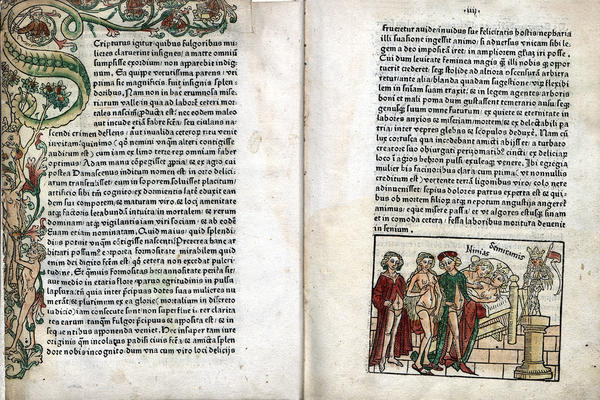 Scripturus igitur quibus fulgoribus mu
lieres claruerint insignes / a matre omniū
sumpsisse exordium / non apparebit indig
num. Ea quippe vetustissima parens / vt
prima sic magnificis fuit insignis splen
doribus. Nam non in hac erumnosa mise
riarum valle in qua ad laborē ceteri mor
tales nascimur
aut incude fabrefcā / seu eiulans na
scendi crimen deflens / aut inualida ceterorū ritu venit
in vitam quinimo / qd nemini vnq̄ alteri contigisse
auditum est / cum iam ex limo terre rerum omniū faber
optimus Adam manu cōpegisset / et ex agro cui
postea Damascenus inditum nomen est in orto delici
arum transtulisset / eum in soporem soluisset placidum /
artificio sibi tm̄ cognito ex dormientis late eduxit ean
dem sui compotem / et maturam viro / et loci amenitate
atq̄ factoris letabundā intuitu / inmortalem et rerum
dominam atq̄ vigilantis iam viri sociam / et ab eodē
Euam etiam nominatam. Quid maius quid splendi
dius potuit vnq̄ cōtigisse nascenti? Preterea hanc ar
bitrari possumus corporea formositate mirabilem quid
enim dei digito factum est / qd cetera non excedat pulcri
tudine. Et q̄muis formositas hec annositate peritura sit
aut medio in etatis flore paruo egritudinis in pulsu
lapsura / tn̄ quia inter pcipuas dotes suas mulieres nu
merāt / et plurimum ex ea glorie / mortalium indiscreto
iudicio / iam consecute sunt / non superflue inter clarita
tes earum tanq̄ fulgor pcipuus et apposita est / et in
sequentibus apponenda veniet. Hec insuper tam iure
originis q̄m incolatus padisi ciuis fcā / et amicta splen
dore nobis incognito dum vna cum viro loci delicijs
·iiij·
frueretur auide / inuidus sue felicitatis hostis nepharia
illi suasione ingessit animo / si aduersus vnicam sibi le
gem a deo impositā iret / in ampliorem gliam iri posse.
Cui dum leuitate feminea magis q̄ illi nobis q̄ opor
tuerit crederet / seq̄ stolide ad altiora oscensurā arbitra
retur / ante alia blanda quadam suggestione / virū flexibi
lem in suam traxit / et in legem agentes / arboris
boni et mali poma dum gustassent temerario ausu / seq̄
genusq̄ suum omne futurum / ex quiete et eternitate in
labores anxios et miseram mortem / et ex delectabili pa
tria / inter vepres glebas et scopulos deduxē. Nam cū
lux corusca qua incedebant amicti abijsset / a turbato
creatore suo obiurgati / perizomatibus cincti / ex deliciarū
loco in agros hebron pulsi exulesq̄ venere. Ibi egregia
mulier his facinoribus clara / cum prima / vt nonnullis
creditū est / vertente terrā ligonibus viro / colo nere
adinuenisset / sepius dolores partus experta est / et qui
bus ob mortem filiorum atq̄ nepotum angustijs angeret
animus / eque misere passa / et vt algores estusq̄ sinam
et in comoda cetera / fessa laboribus moritura deuenit
in senium.
Ninias Semiramis